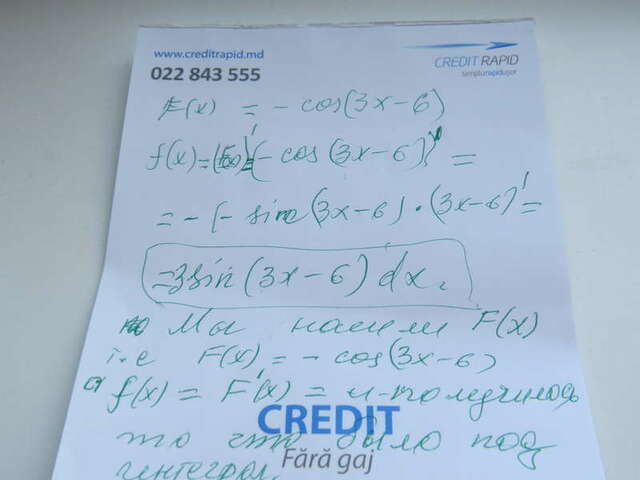 www.creditrapid.md
022 843 555
CREDIT RAPID
simplu rapid ușor
F(x) = - cos(3x-6)
f(x) = (F(x))' = (- cos(3x-6))' =
= - (- sin(3x-6)) · (3x-6)' =
= 3sin(3x-6) dx.
Мы нашли F(x)
т.е F(x) = - cos(3x-6)
а f(x) = F'(x) = и получилось
то что было под
интеграл.
CREDIT
Fără gaj